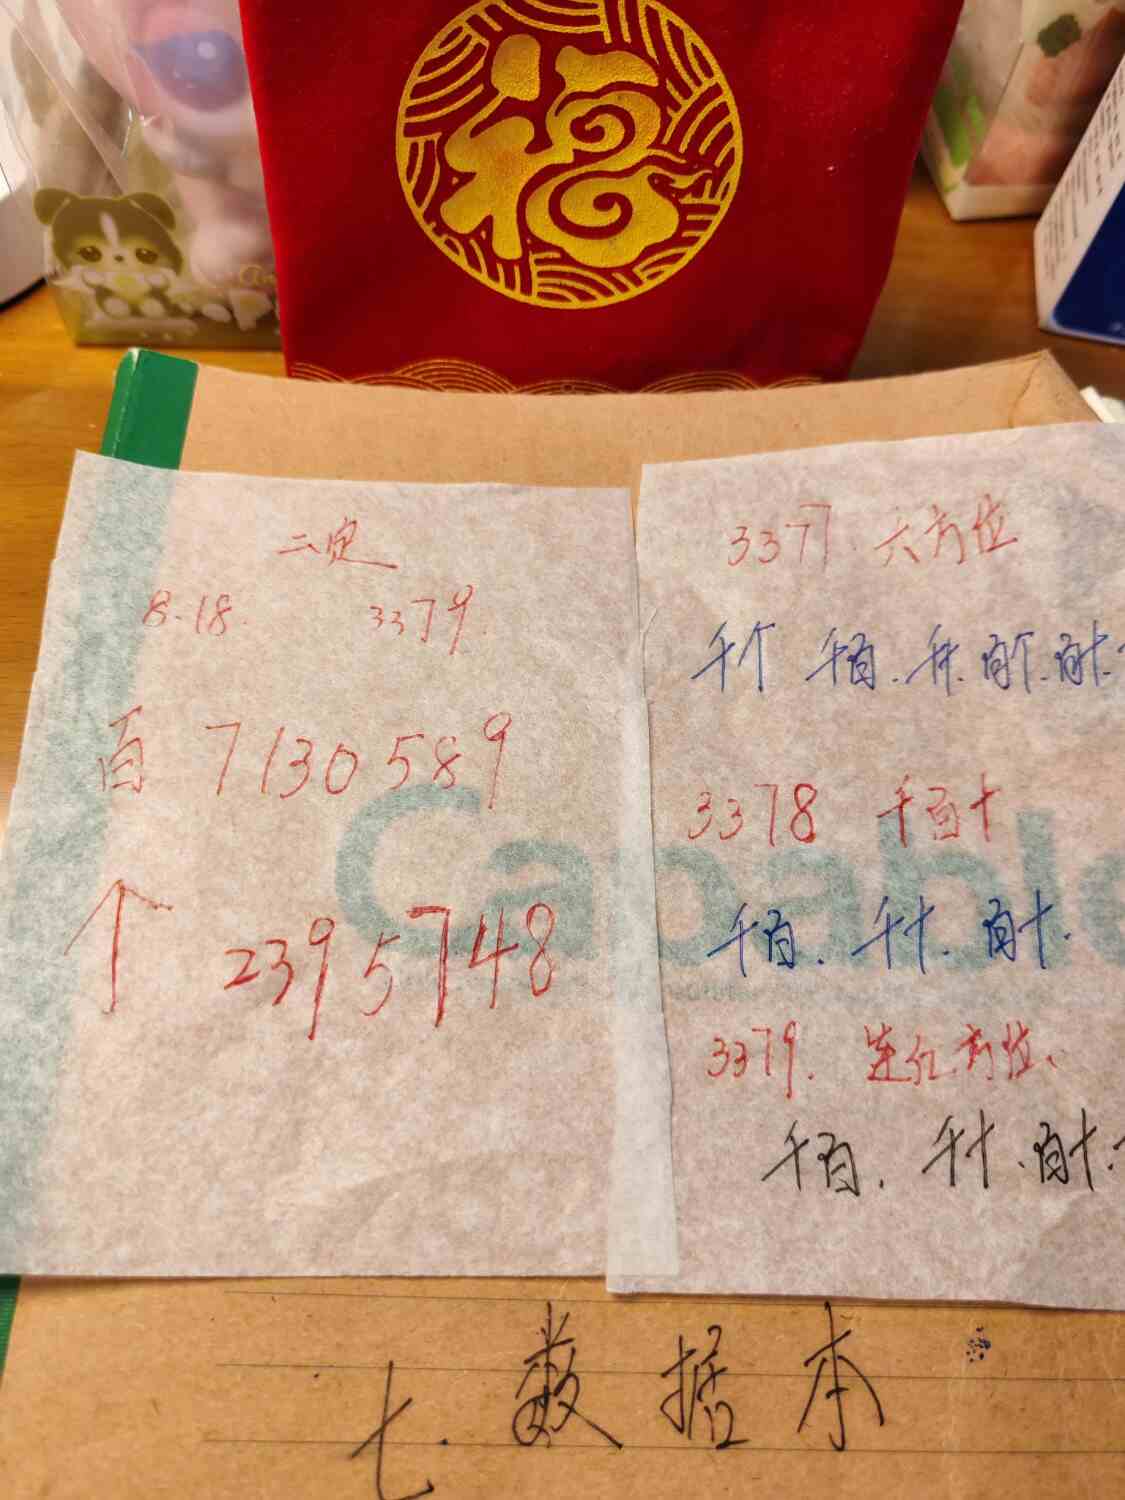 福
二定
8.18. 3379.
百 7130589
个 2395748
3377. 六方位
千个 千百. 千十. 百个. 百十.
3378 千百十
千百. 千十. 百十.
3379. 连红方位、
千百. 千十. 百十.
Capabl
七. 数据本